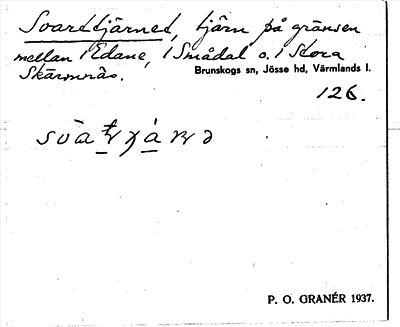 Svarttjärnet, tjärn på gränsen
mellan 1 Edane, 1 Smådal o. 1 Stora
Skärmnäs.
Brunskogs sn, Jösse hd, Värmlands l.
126.
P. O. GRANÉR 1937.